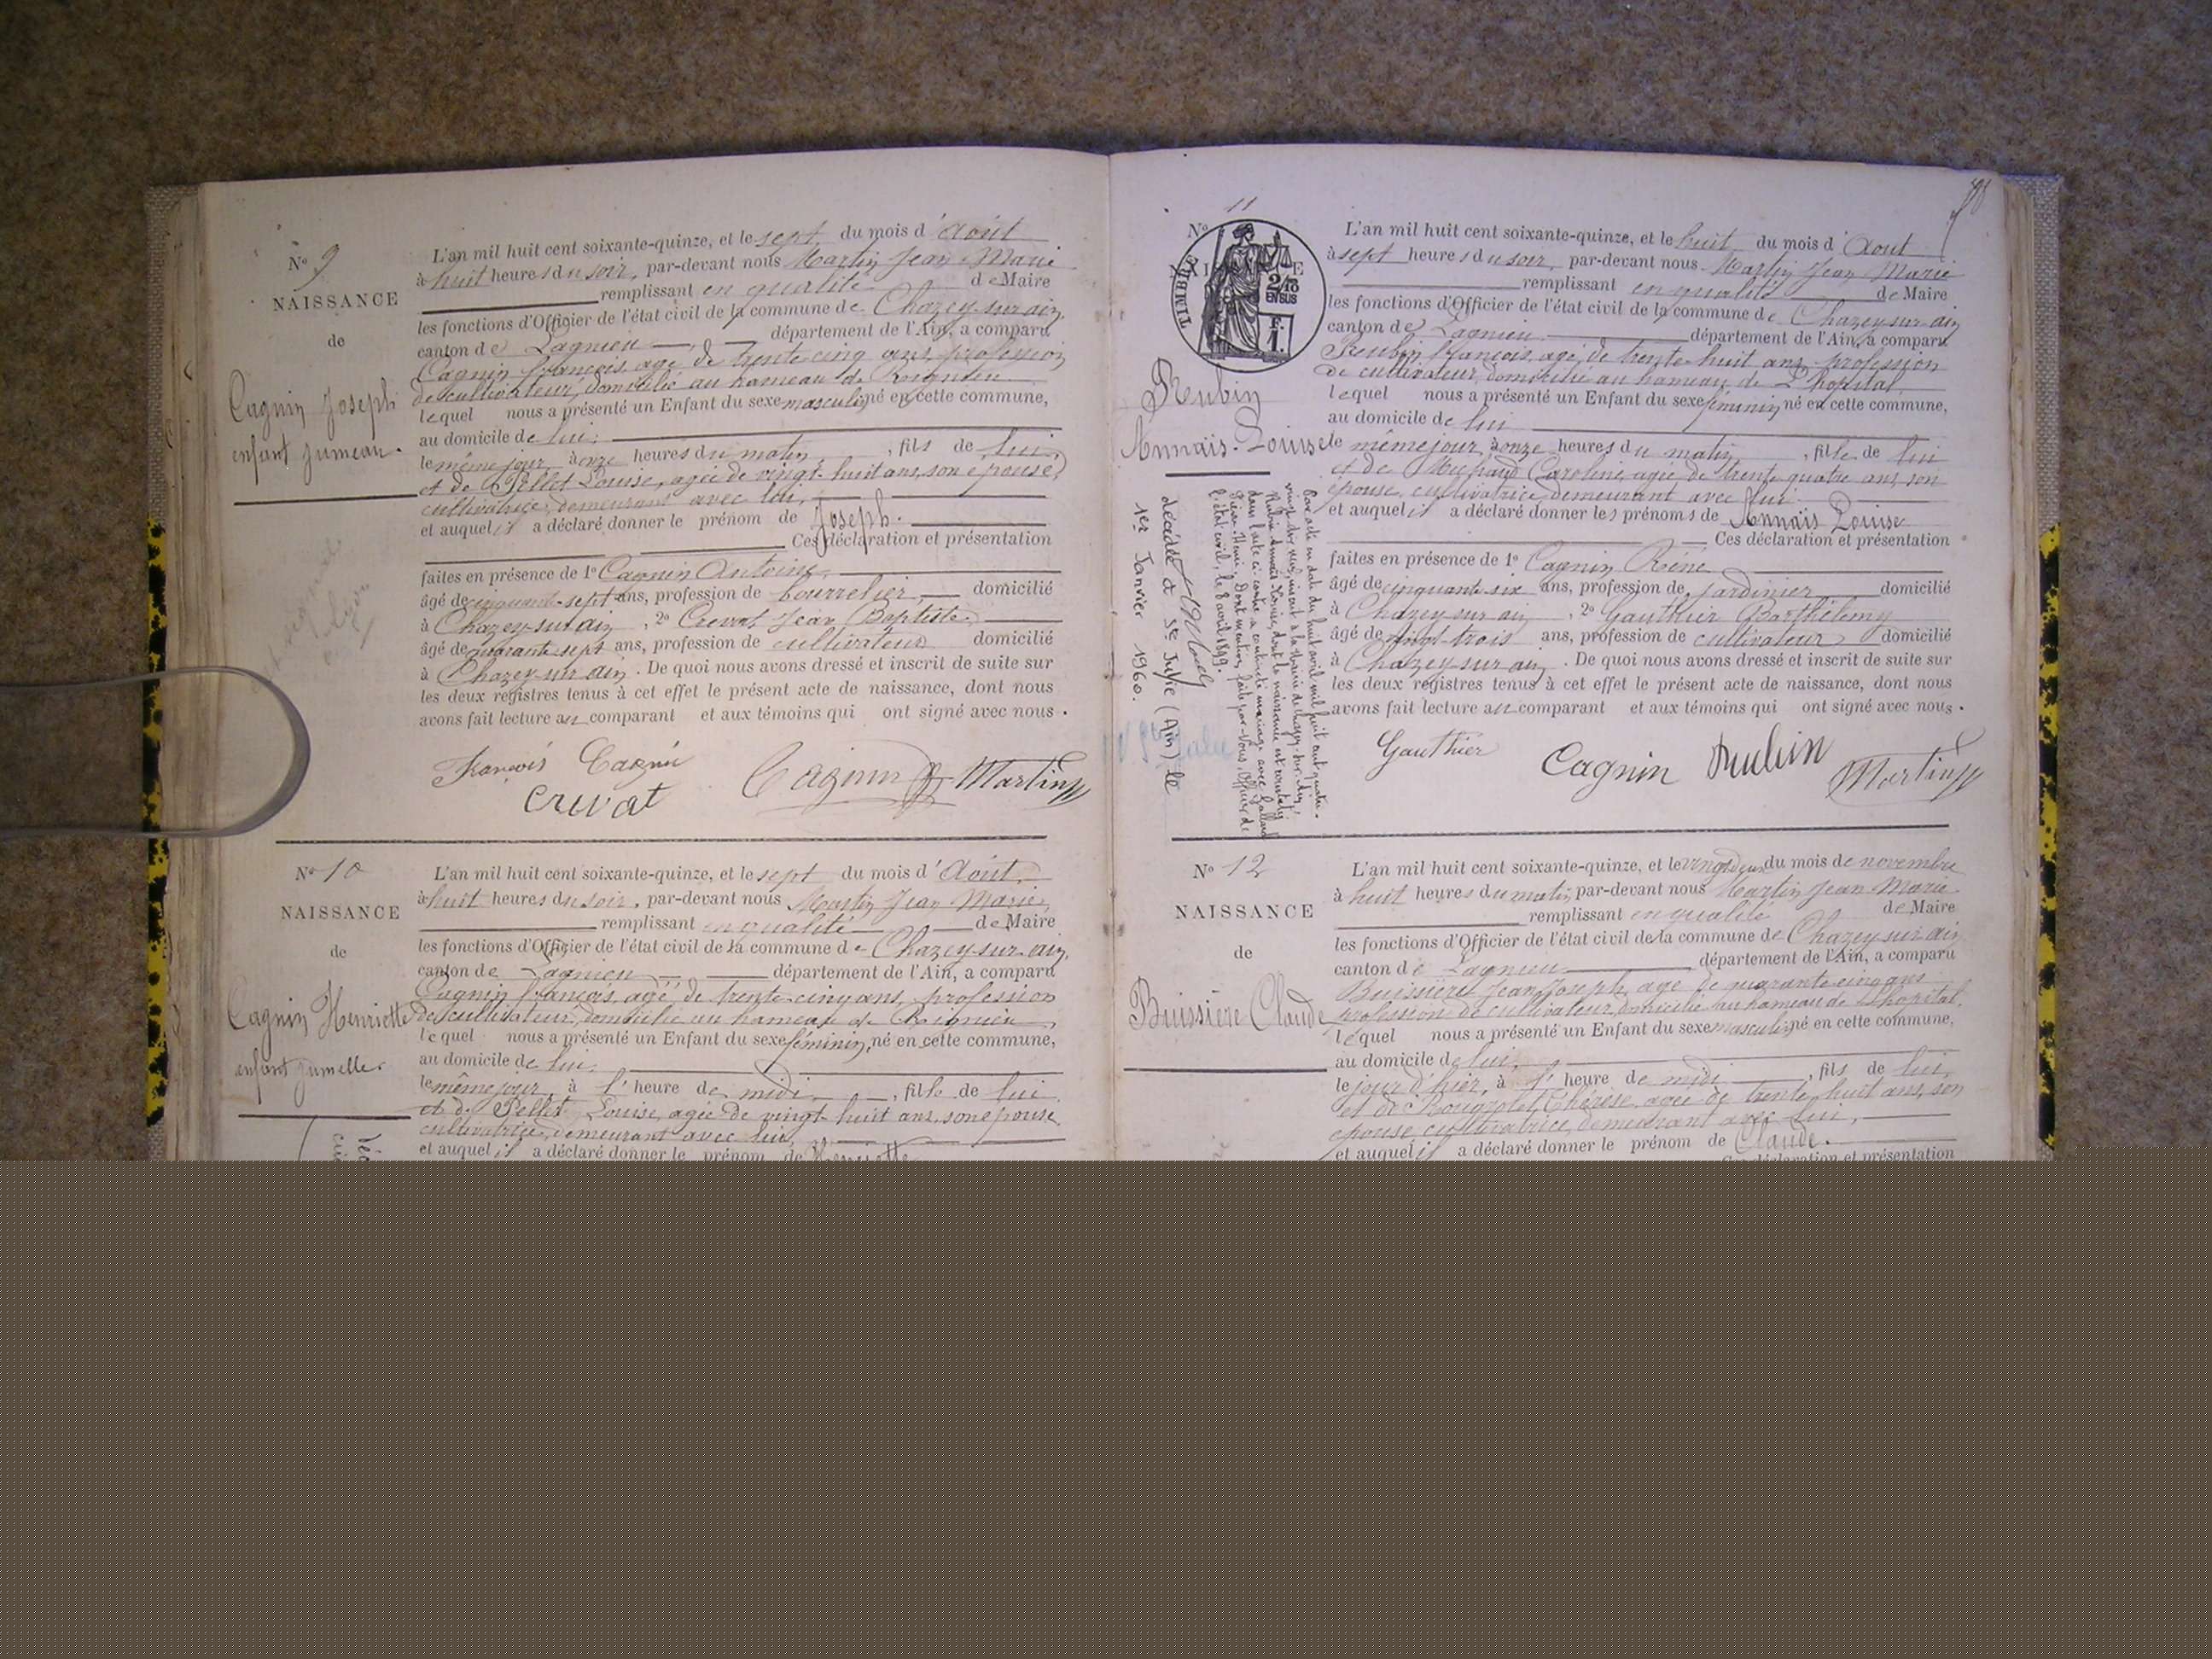 N° 9
NAISSANCE
de
Cagnin Joseph
enfant jumeau.
L'an mil huit cent soixante-quinze, et le sept du mois d'Août
à huit heures du soir, par-devant nous Martin Jean Marie
remplissant en qualité de Maire
les fonctions d'Officier de l'état civil de la commune de Chazey-sur-ain,
canton de Lagnieu département de l'Ain, a comparu
Cagnin François, agé de trente cinq ans, profession
de cultivateur, domicilié au hameau de Rignieu
lequel nous a présenté un Enfant du sexe masculin, né en cette commune,
au domicile de lui,
le même jour à onze heures du matin, fils de lui,
et de Pellet Louise, agée de vingt-huit ans, son épouse,
cultivatrice, demeurant avec lui,
et auquel il a déclaré donner le prénom de Joseph.
Ces déclaration et présentation
faites en présence de 1° Cagnin Antoine,
âgé de cinquante-sept ans, profession de bourrelier, domicilié
à Chazey-sur ain, 2° Crevat Jean Baptiste,
âgé de quarante sept ans, profession de cultivateur domicilié
à Chazey-sur ain. De quoi nous avons dressé et inscrit de suite sur
les deux registres tenus à cet effet le présent acte de naissance, dont nous
avons fait lecture au comparant et aux témoins qui ont signé avec nous.
François Cagnin Cagnin Martin
Crevat
N° 10
NAISSANCE
de
Cagnin Henriette
enfant jumelle.
L'an mil huit cent soixante-quinze, et le sept du mois d'Août,
à huit heures du soir, par-devant nous Martin Jean Marie,
remplissant en qualité de Maire
les fonctions d'Officier de l'état civil de la commune de Chazey-sur-ain,
canton de Lagnieu département de l'Ain, a comparu
Cagnin François, agé de trente-cinq ans, profession
de cultivateur, domicilié au hameau de Rignieu,
lequel nous a présenté un Enfant du sexe féminin, né en cette commune,
au domicile de lui,
le même jour, à l'heure de midi, fille de lui
et de Pellet Louise, agée de vingt-huit ans, son épouse,
cultivatrice, demeurant avec lui,
et auquel il a déclaré donner le prénom de Henriette
N° 11
TIMBRE
2/10
EN SUS
F.
1.
Reubin
Annaïs-Louise
L'an mil huit cent soixante-quinze, et le huit du mois d'Aout
à sept heures du soir, par-devant nous Martin Jean Marie
remplissant en qualité de Maire
les fonctions d'Officier de l'état civil de la commune de Chazey-sur-ain
canton de Lagnieu département de l'Ain, a comparu
Reubin François, agé de trente-huit ans, profession
de cultivateur, domicilié au hameau de L'hopital
lequel nous a présenté un Enfant du sexe féminin, né en cette commune,
au domicile de lui
le même jour, à onze heures du matin, fille de lui
et de Michaud Caroline, agée de trente quatre ans, son
épouse, cultivatrice, demeurant avec lui.
et auquel il a déclaré donner les prénoms de Annaïs Louise
Ces déclaration et présentation
faites en présence de 1° Cagnin Réné
âgé de cinquante six ans, profession de jardinier domicilié
à Chazey sur ain, 2° Gauthier Barthélemy
âgé de vingt-trois ans, profession de cultivateur domicilié
à Chazey sur ain. De quoi nous avons dressé et inscrit de suite sur
les deux registres tenus à cet effet le présent acte de naissance, dont nous
avons fait lecture au comparant et aux témoins qui ont signé avec nous.
Gauthier Cagnin Reubin Martin
Par acte en date du huit avril mil huit cent quatre-
vingt-dix neuf, inscrit à la Mairie de Chazey-sur-Ain,
Reubin Annaïs-Louise, dont la naissance est constatée
dans l'acte ci-contre a contracté mariage avec Galland
Henri. Dont mention faite par Nous, Officier de
l'état civil, le 8 avril 1899.
Décédée à Ste Julie (Ain) le
1er Janvier 1960.
N° 12
NAISSANCE
de
Buissière Claude
L'an mil huit cent soixante-quinze, et le vingt deux du mois de novembre
à huit heures du matin, par-devant nous Martin Jean Marie
remplissant en qualité de Maire
les fonctions d'Officier de l'état civil de la commune de Chazey sur ain
canton de Lagnieu département de l'Ain, a comparu
Buissière Jean Joseph, agé de quarante cinq ans
profession de cultivateur, domicilié au hameau de L'hopital,
lequel nous a présenté un Enfant du sexe masculin, né en cette commune,
au domicile de lui,
le jour d'hier, à l'heure de midi, fils de lui,
et de Thérèse, agée de trente huit ans, son
épouse, cultivatrice, demeurant avec lui,
et auquel il a déclaré donner le prénom de Claude.
Ces déclaration et présentation